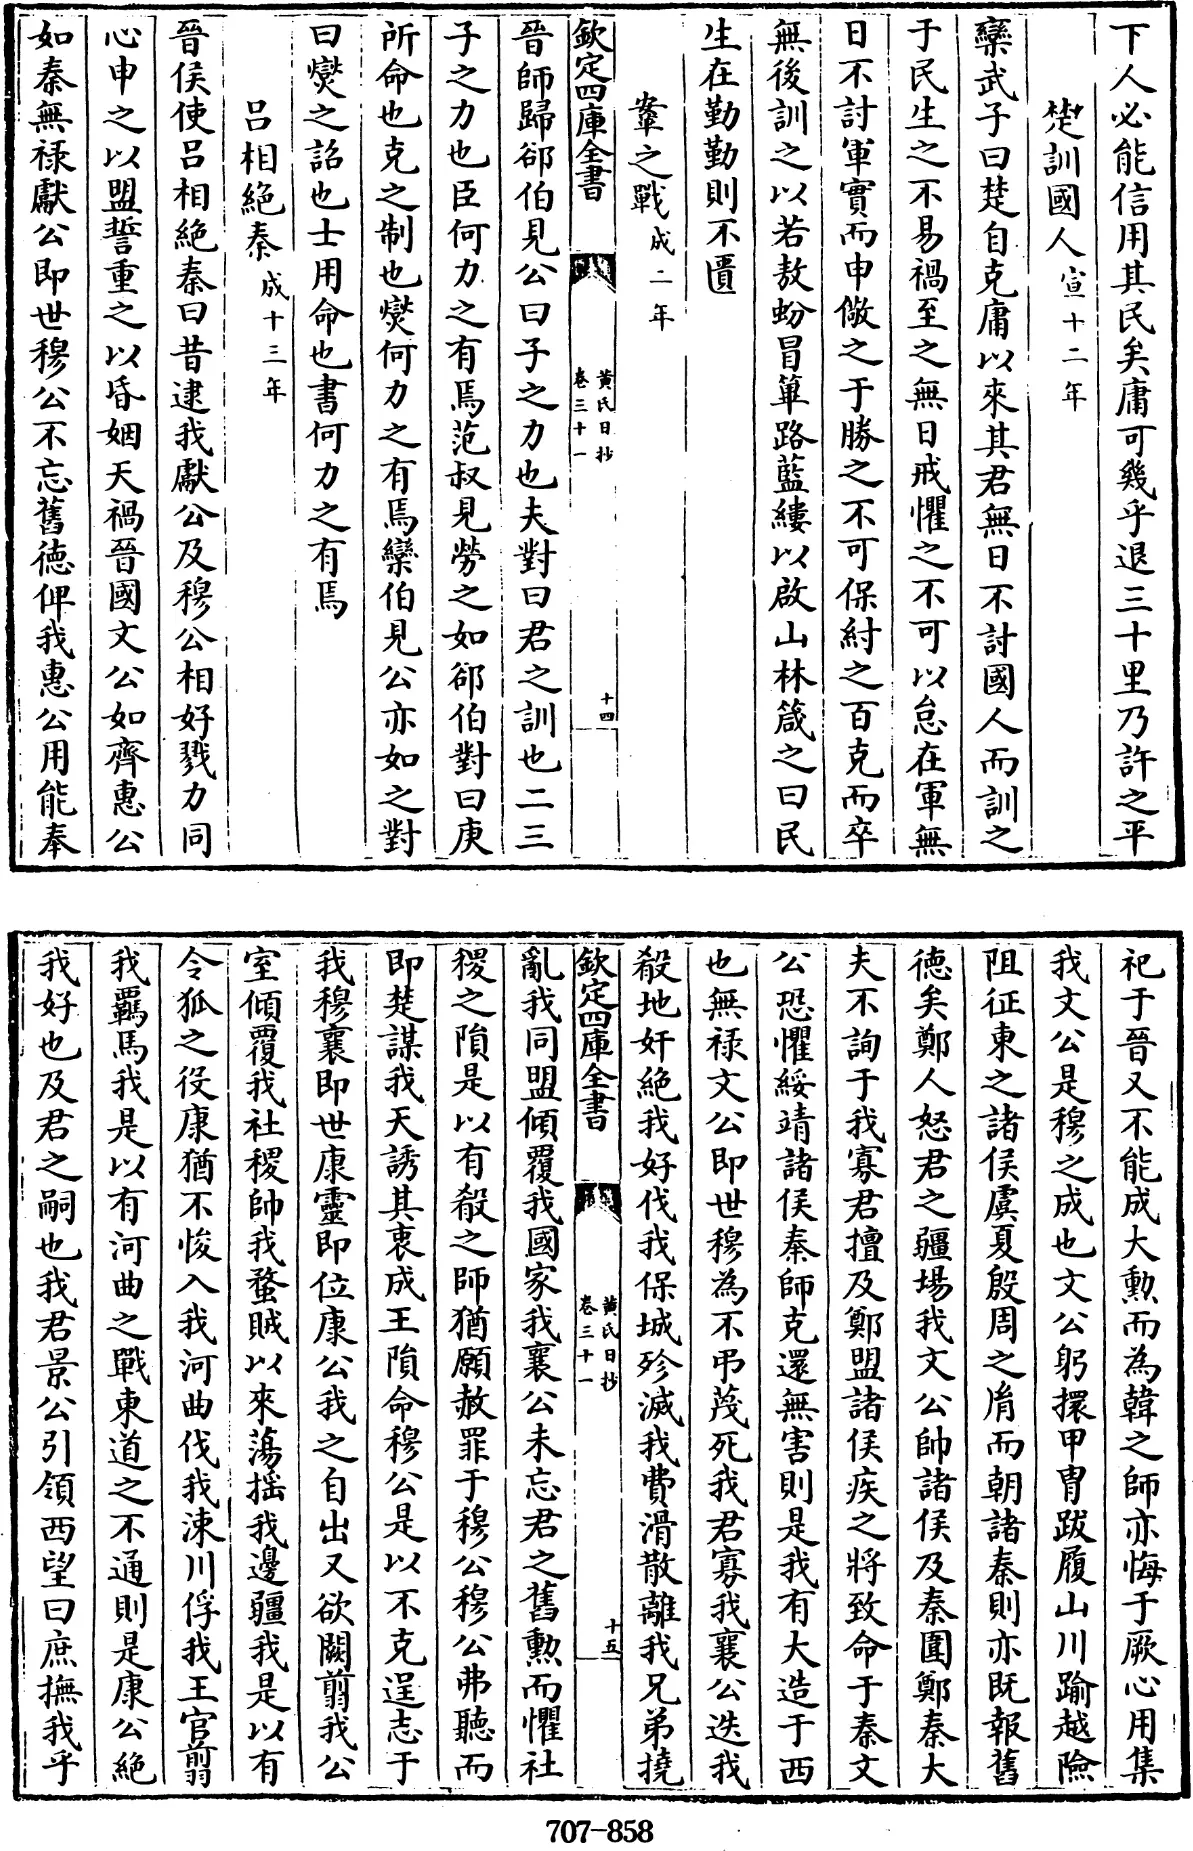 下人必能信用其民矣庸可幾乎退三十里乃許之平
楚訓國人宣十二年
欒武子曰楚自克庸以來其君無日不討國人而訓之
于民生之不易禍至之無日戒懼之不可以怠在軍無
日不討軍實而申儆之于勝之不可保紂之百克而卒
無後訓之以若敖蚡冒篳路藍縷以啟山林箴之曰民
生在勤勤則不匱
鞌之戰成二年
欽定四庫全書
黄氏日抄
卷三十一
十四
晉師歸郤伯見公曰子之力也夫對曰君之訓也二三
子之力也臣何力之有焉范叔見勞之如郤伯對曰庚
所命也克之制也燮何力之有焉欒伯見公亦如之對
曰燮之詔也士用命也書何力之有焉
吕相絶秦成十三年
晉侯使吕相絶秦曰昔逮我獻公及穆公相好戮力同
心申之以盟誓重之以昏姻天禍晉國文公如齊惠公
如秦無禄獻公即世穆公不忘舊德俾我惠公用能奉
祀于晉又不能成大勲而為韓之師亦悔于厥心用集
我文公是穆之成也文公躬擐甲胄跋履山川踰越險
阻征東之諸侯虞夏殷周之胄而朝諸秦則亦既報舊
德矣鄭人怒君之疆埸我文公帥諸侯及秦圍鄭秦大
夫不詢于我寡君擅及鄭盟諸侯疾之將致命于秦文
公恐懼綏靖諸侯秦師克還無害則是我有大造于西
也無禄文公即世穆為不弔蔑死我君寡我襄公迭我
殽地奸絶我好伐我保城殄滅我費滑散離我兄弟撓
欽定四庫全書
黄氏日抄
卷三十一
十五
亂我同盟傾覆我國家我襄公未忘君之舊勲而懼社
稷之隕是以有殽之師猶願赦罪于穆公穆公弗聽而
即楚謀我天誘其衷成王隕命穆公是以不克逞志于
我穆襄即世康靈即位康公我之自出又欲闕翦我公
室傾覆我社稷帥我蝥賊以來蕩摇我邊疆我是以有
令狐之役康猶不悛入我河曲伐我涑川俘我王官翦
我羈馬我是以有河曲之戰東道之不通則是康公絶
我好也及君之嗣也我君景公引領西望曰庶撫我乎
707-858